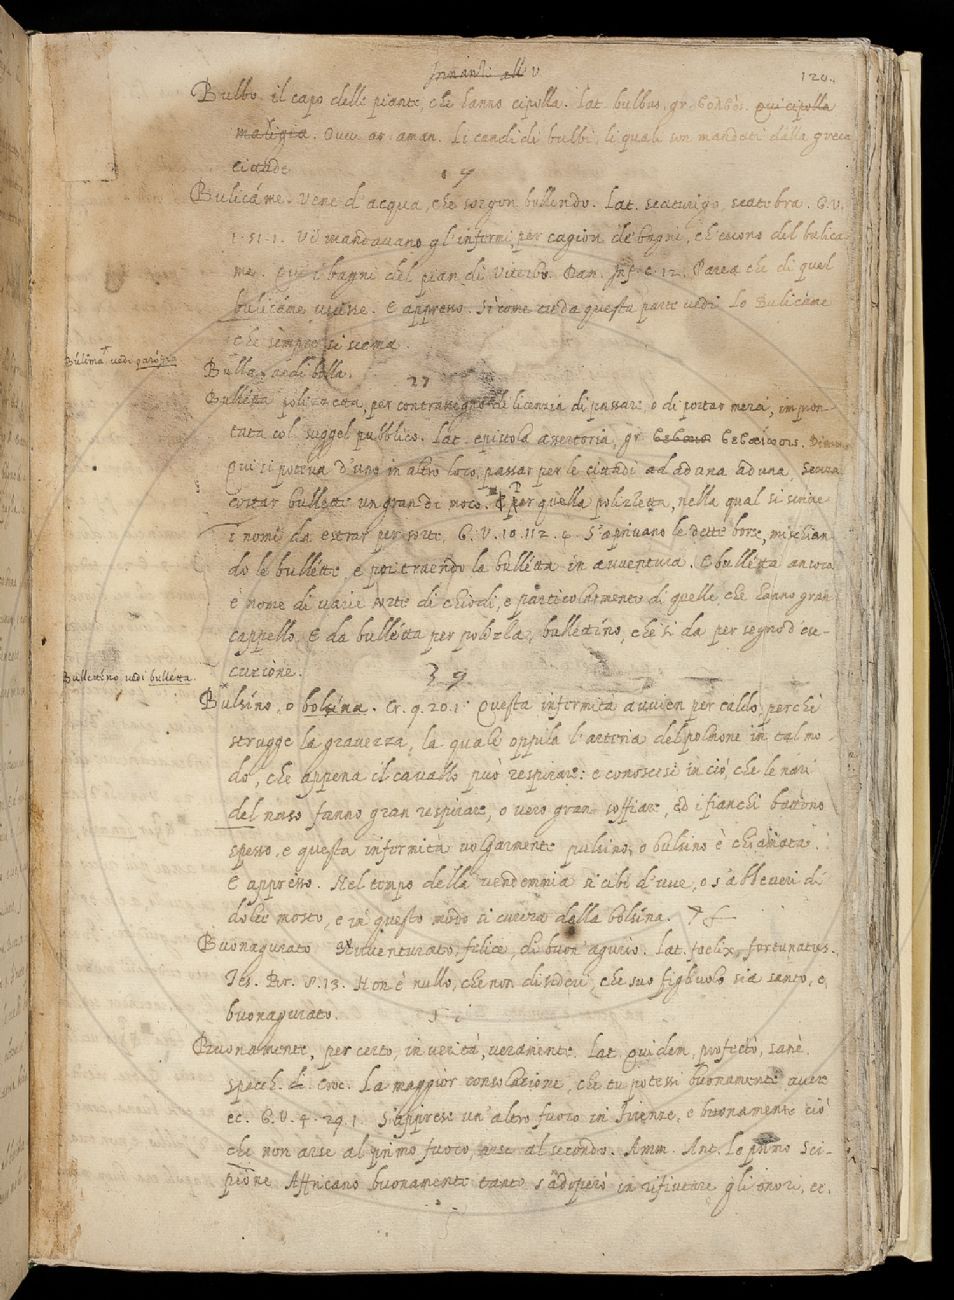 Innanzi all V
120.
Bulbo. il capo delle piante, che hanno cipolla. Lat. bulbus, gr. βολβός. Qui cipolla
maligia. Ovv. ar. aman. Li candidi bulbi, li quali son mandati dalla greca
cittade
19
Bulicáme. Vene d'acqua, che sorgon bollendo. Lat. scaturigo, scatebra. G. V.
1. 51. 1. Vi mandavano gl'infermi, per cagion de' bagni, ch'escono del bulica-
me. Qui i bagni del pian di Viterbo. Dan. Inf. c. 12. Parea che di quel
bulicáme uscisse. E appresso. Sì come tu da questa parte vedi Lo Bulicáme
che sempre si scema.
Búlima vedi
Bulla vedi bolla.
27
Bulletta polizzetta, per contrassegno di licenzia di passare, o di portar merci, impron-
tata col suggel pubblico. Lat. epistola assertoria, gr.
Qui si poteva d'uno in altro loco, passar per le cittadi ad ad una ad una, Senza
cortar bullette un gran di moco. E per quella polizzetta, nella qual si scrive
i nomi da estrar per sorte. G. V. 10. 112. 4. S'aprivano le dette borse, mischian-
do le bullétte, e poi traendo la bullétta in avventura. E bullétta ancora
è nome di varie sorte di chiodi, e particolarmente di quelle, che hanno gran
cappello. E da bullétta per polizza, bullettíno, che si da per segno d'ese-
cuzione.
39
Bullettino vedi bullétta.
Bulsíno, o bolsína. Cr. 9. 20. 1. Questa infermità avvien per caldo, perchè
strugge la gravezza, la quale oppila l'arteria del polmone in tal mo-
do, che appena il cavallo può respirare: e conoscesi in ciò, che le nari
del naso fanno gran respirare, o vero gran soffiare, ed i fianchi battono
spesso, e questa infermità volgarmente pulsino, o bulsino è chiamata.
E appresso. Nel tempo della vendemmia si cibi d'uve, o s'abbeveri di
dolce mosto, e in questo modo si curerà della bolsina.
Buonagurato Avventurato, felice, di buon'agurio. Lat. foelix, fortunatus.
Tes. Br. V. 13. Non è nullo, che non disideri, che suo figliuolo sia santo, e
buonagurato.
Buonamente, per certo, in verità, veramente. Lat. Quidem, profectò, sanè.
Specch. di Croc. La maggior consolazione, che tu potessi buonamente avere
ec. G. V. 4. 29. 1. S'apprese un'altro fuoco in Firenze, e buonamente ciò
che non arse al primo fuoco, arse al secondo. Amm. Ant. Lo primo Sci-
pione Affricano buonamente tanto s'adoperò in rifiutare gli onori, ec.